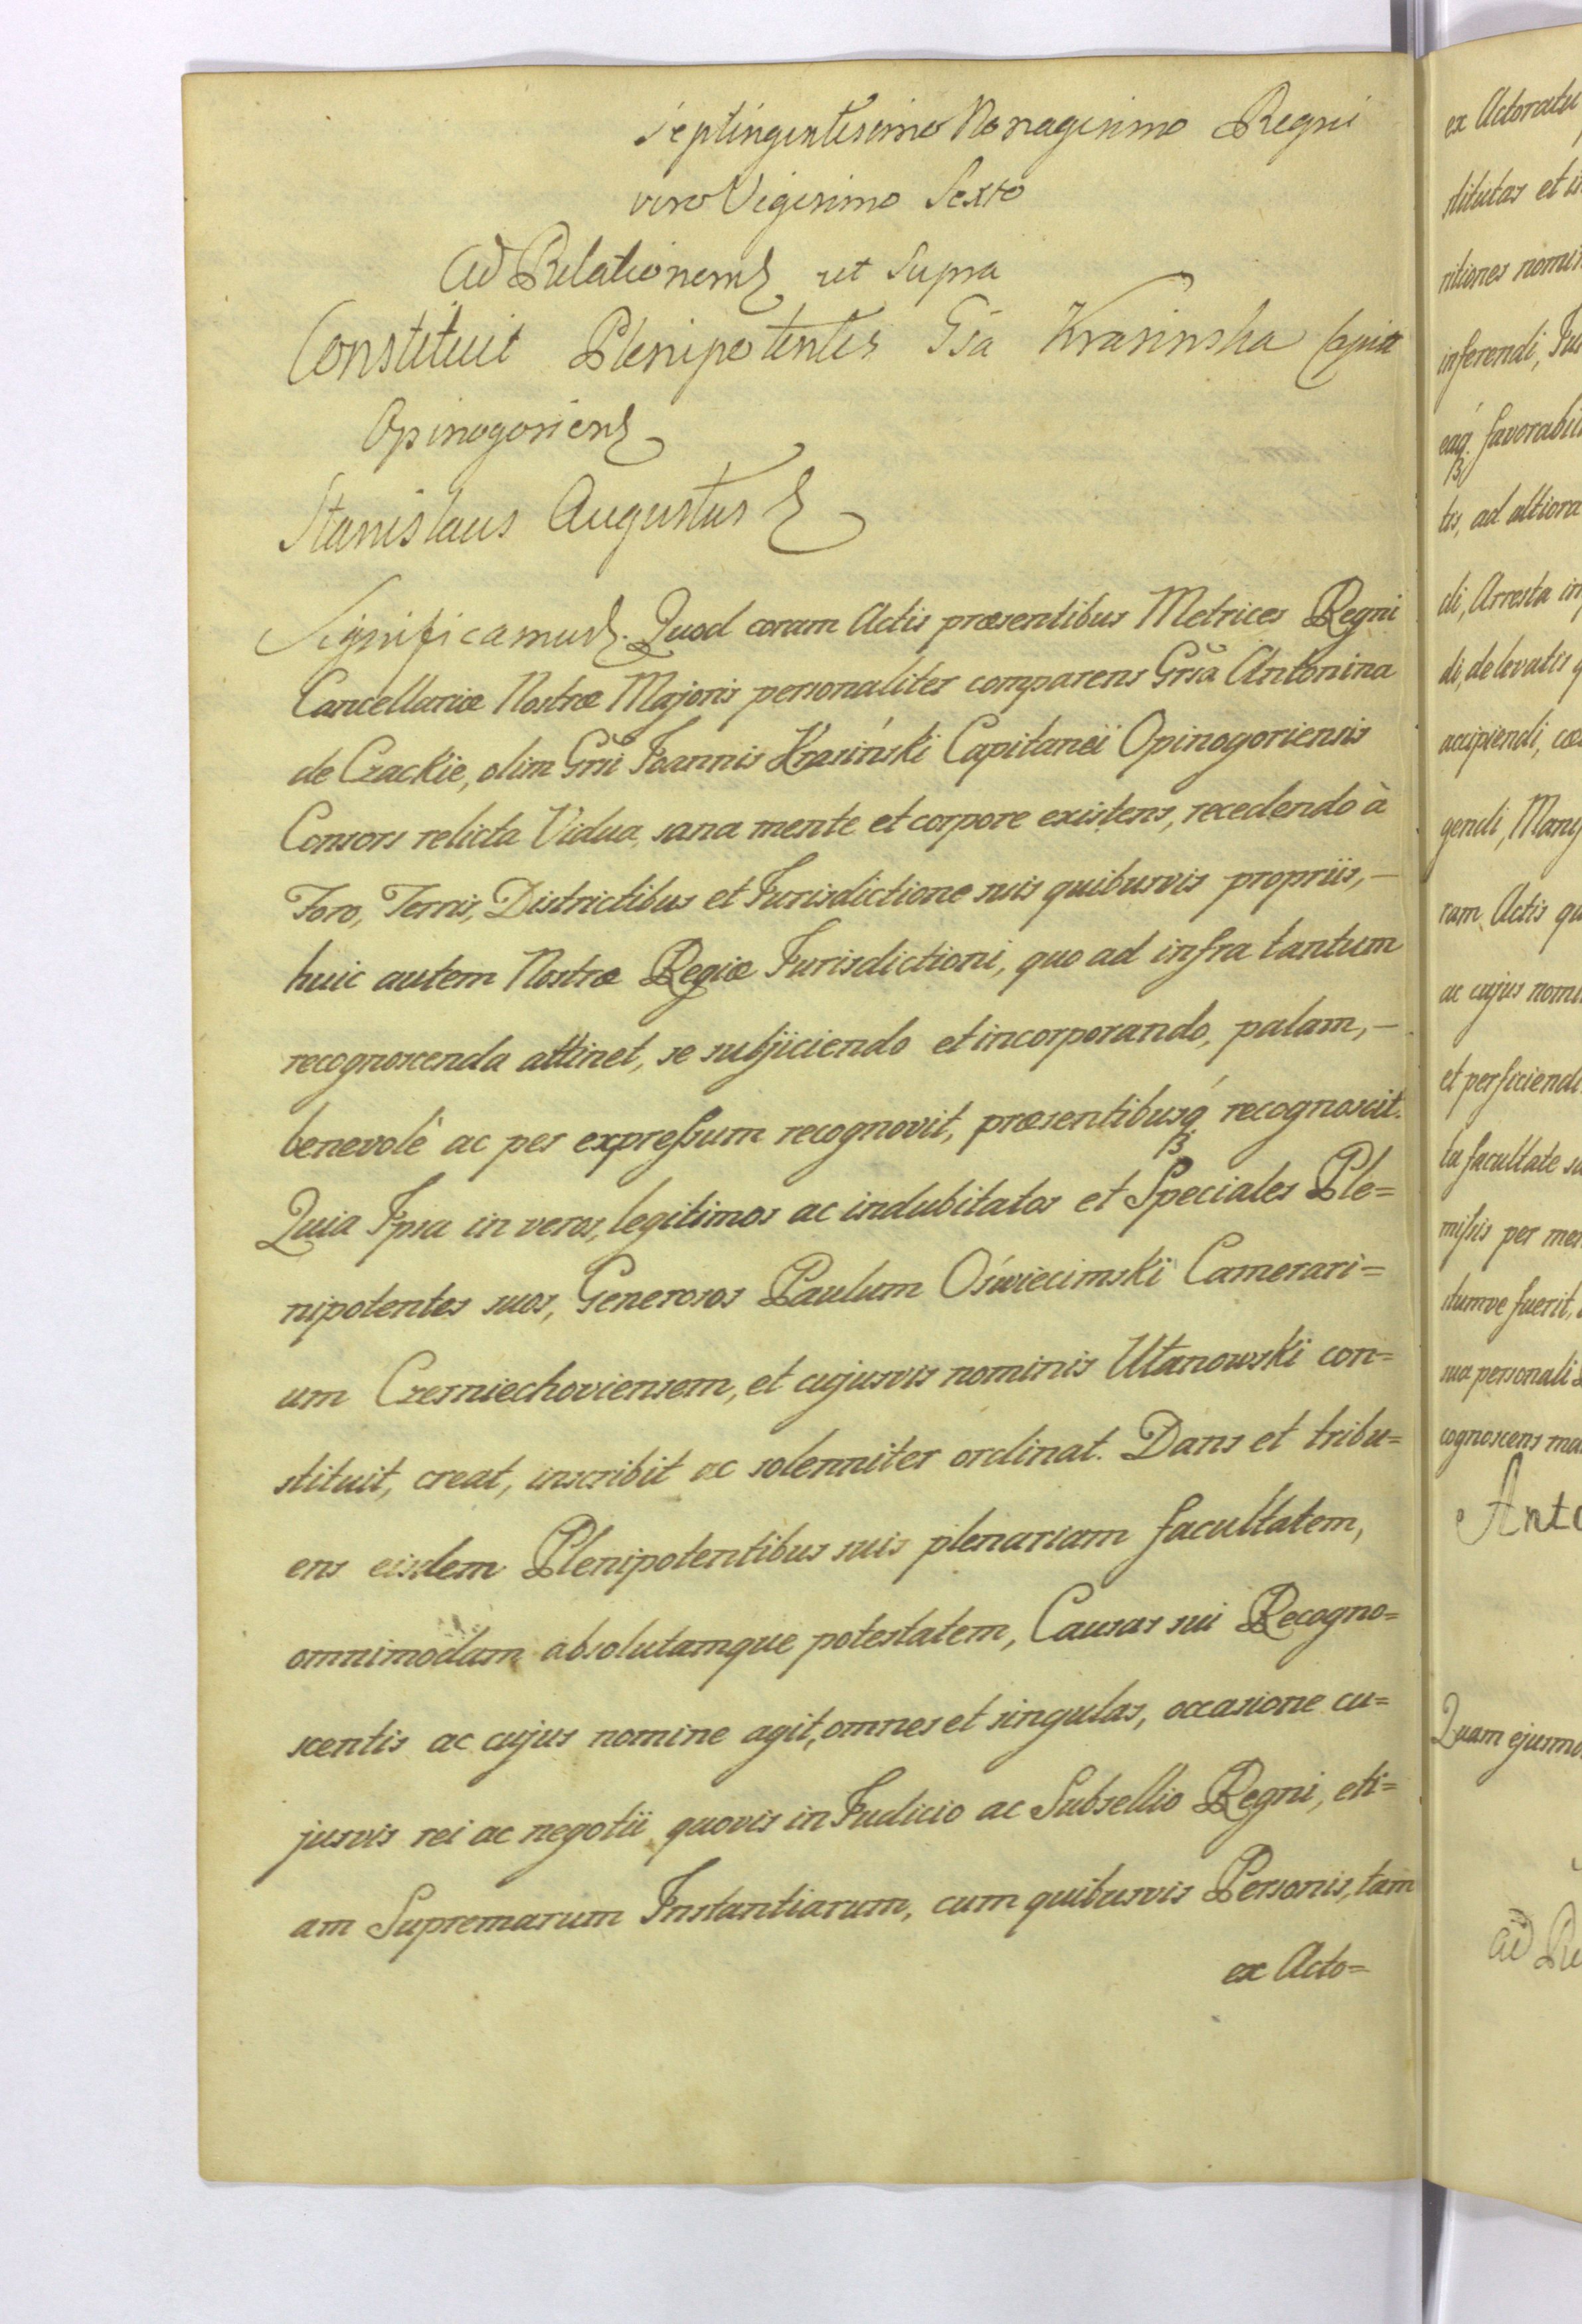 Septingentesimo Nonagesimo Regni
vero Vigesimo Sexto
Ad Relationem ut Supra
Constituit Plenipotentes Gsa Krasinska Capita
Opinogoriens
Stanislaus Augustus
Significamus. Quod coram Actis præsentibus Metrices Regni
Cancellariæ Nostræ Majoris personaliter comparens Grsa Antonina
de Czackie, olim Grsi Joannis Krasiński Capitanei Opinogoriensis
Consors relicta Vidua, sana mente et corpore existens, recedendo à
Foro, Terris, Districtibus et Jurisdictione suis quibusvis propriis,–
huic autem Nostræ Regiæ Jurisdictioni, quo ad infra tantum
recognoscenda attinet, se subjiciendo et incorporando, palam,–
benevolè ac per expressum recognovit, præsentibusq́ recognoscit.
Quia Ipsa in veros, legitimos ac indubitatos et Speciales Ple=
nipotentes suos, Generosos Paulum Oświecimski Camerari=
um Czerniechoviensem, et cujusvis nominis Ułanowski con=
stituit, creat, inscribit ac solenniter ordinat. Dans et tribu=
ens eisdem Plenipotentibus suis plenariam facultatem,
omnimodam absolutamque potestatem, Causas sui Recogno=
scentis ac cujus nomine agit, omnes et singulas, occasione cu=
jusvis rei ac negotii quovis in Judicio ac Subsellio Regni, eti=
am Supremarum Instantiarum, cum quibusvis Personis, tam
ex Acto=
ex Actoratu
stitutas et
ritiones
inferendi,
eáq́.
tis, ad altiora
di, Arresta
di, de levatis
accipiendi,
gendi,
ram Actis
ac cujus
et perficiendi
ta facultate
missis per
dumve fuerit,
sua personali
cognoscens
Anto
Quam
Ad